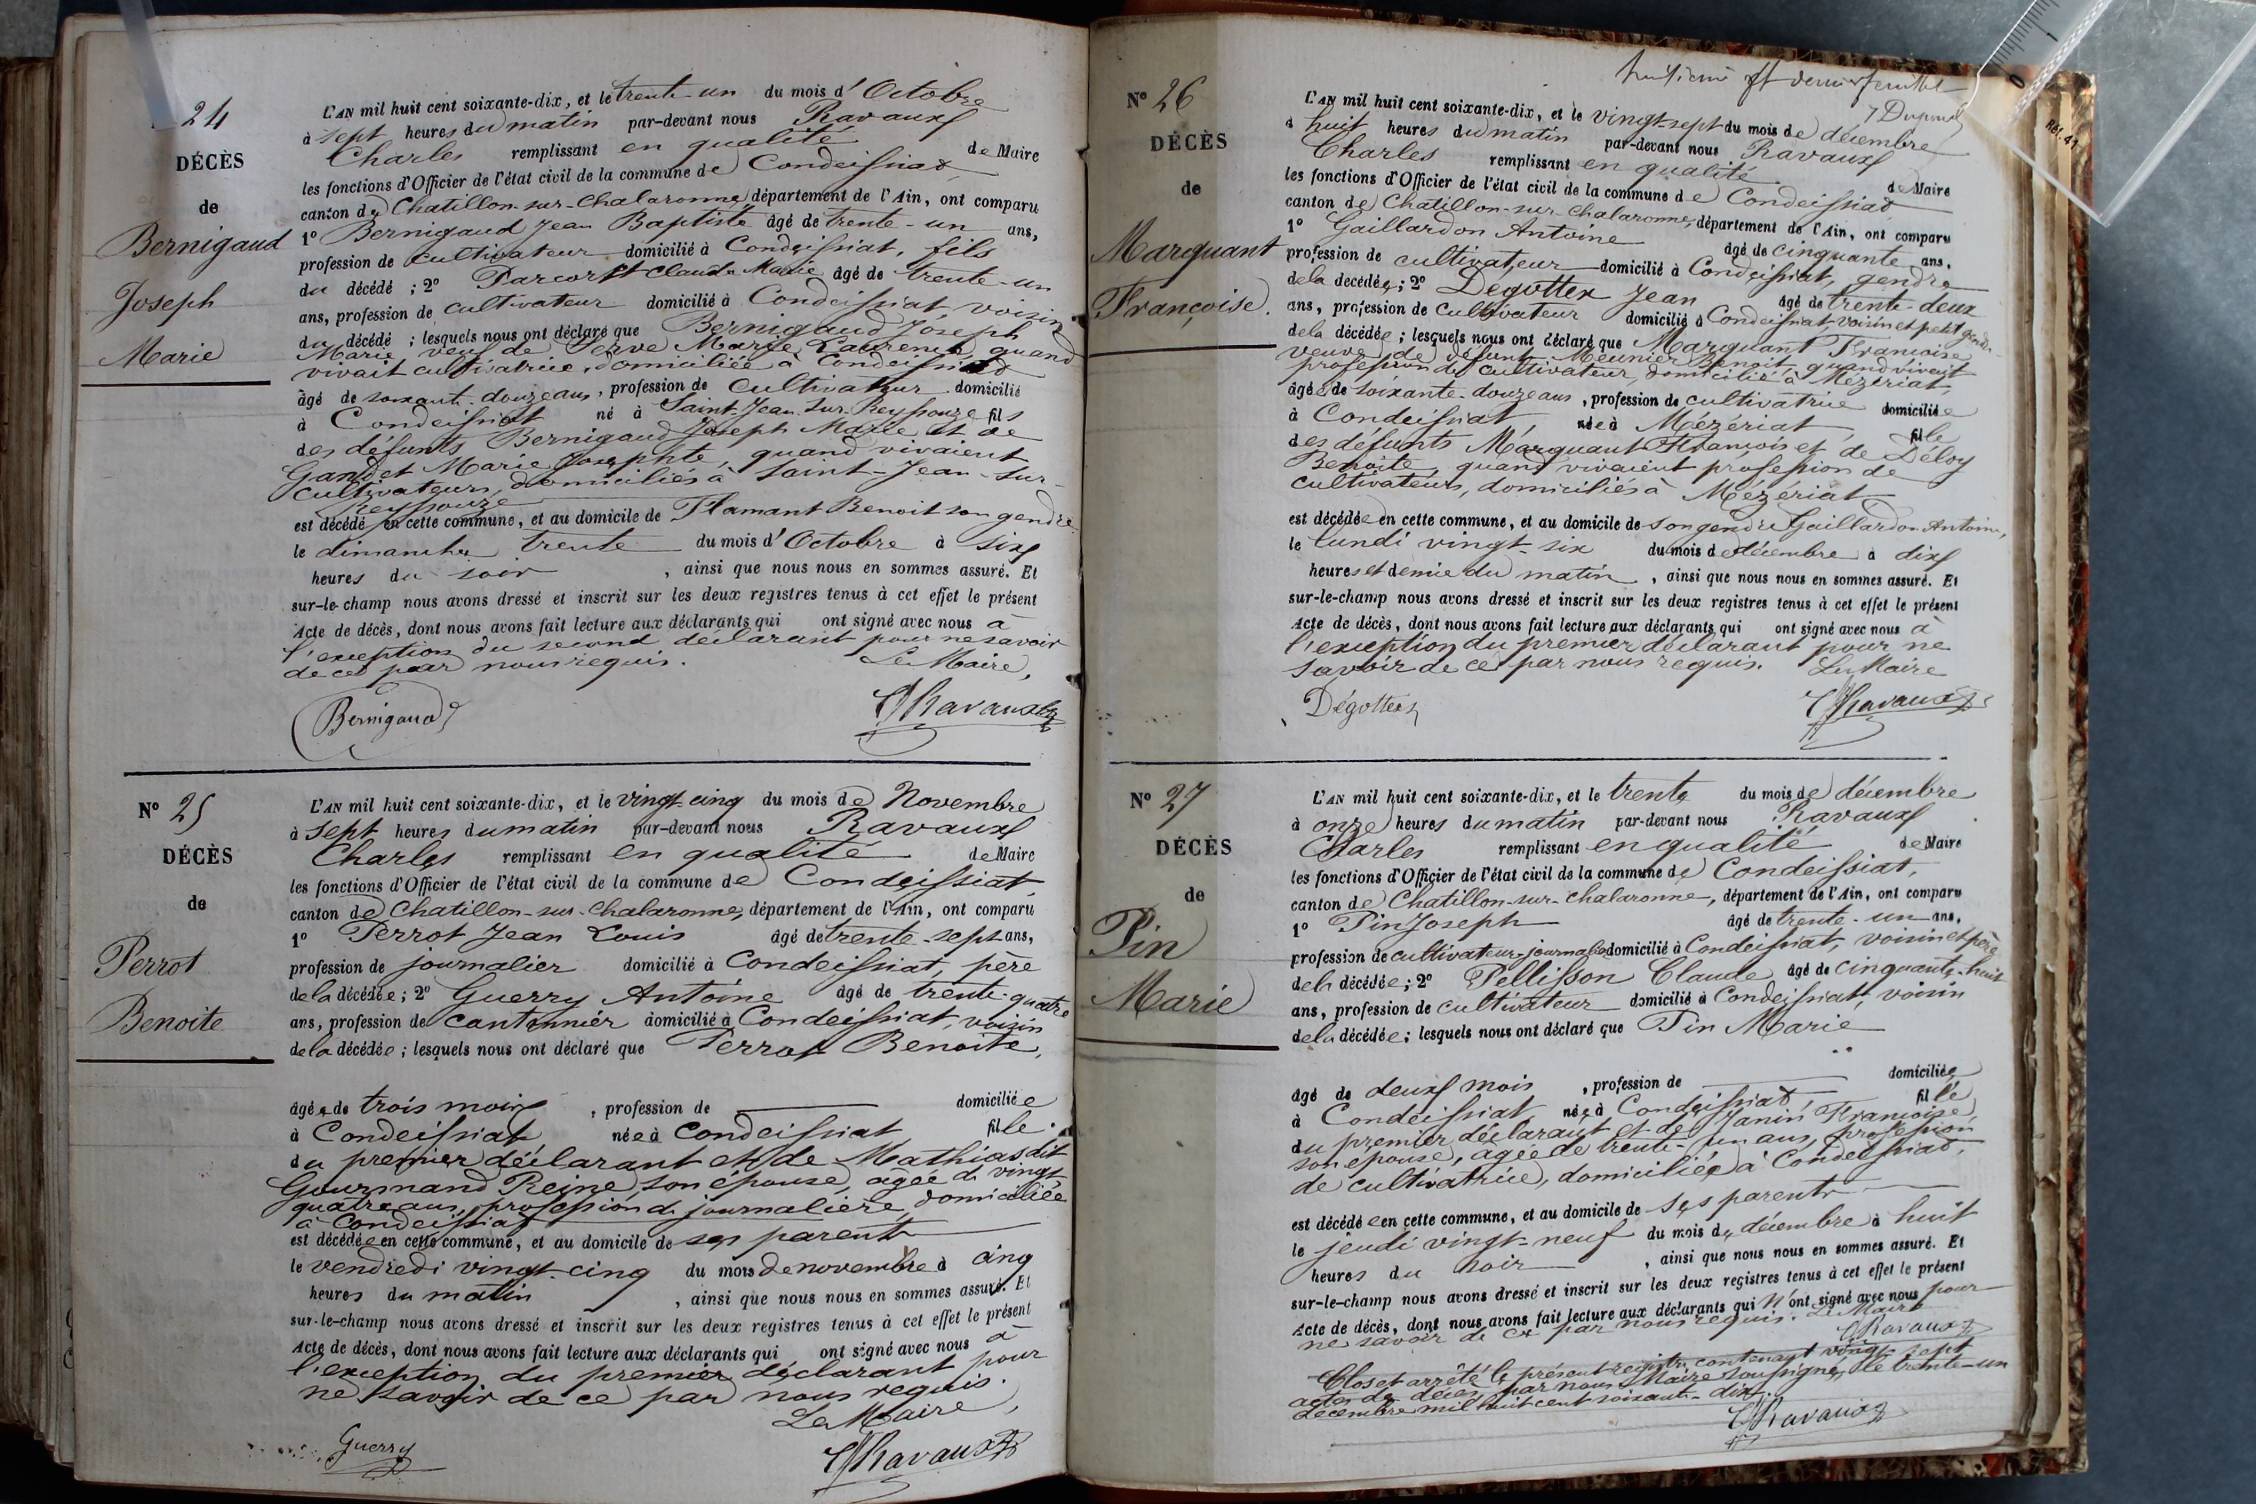 24
DÉCÈS
de
Bernigaud
Joseph
Marie
L'AN mil huit cent soixante-dix, et le trente-un du mois d'Octobre
à sept heures du matin par-devant nous Ravaux
Charles remplissant en qualité de Maire
les fonctions d'Officier de l'état civil de la commune de Condeissiat
canton de Chatillon-sur-Chalaronne, département de l'Ain, ont comparu
1º Bernigaud Jean Baptiste âgé de trente-un ans,
profession de cultivateur domicilié à Condeissiat, fils
du décédé ; 2º Claude Marie âgé de trente-un
ans, profession de cultivateur domicilié à Condeissiat, voisin
du décédé ; lesquels nous ont déclaré que Bernigaud Joseph
Marie, veuf de Serve Marie Laurence, quand
vivait cultivatrice, domiciliée à Condeissiat
âgé de soixante-douze ans, profession de cultivateur domicilié
à Condeissiat né à Saint-Jean-sur-Reyssouze fils
des défunts Bernigaud Joseph Marie et de
Gandet Marie Josephte, quand vivaient
cultivateurs, domiciliés à Saint-Jean-sur-
Reyssouze
est décédé en cette commune, et au domicile de Flamant Benoit son gendre
le dimanche trente du mois d'Octobre à six
heures du soir, ainsi que nous nous en sommes assuré. Et
sur-le-champ nous avons dressé et inscrit sur les deux registres tenus à cet effet le présent
Acte de décès, dont nous avons fait lecture aux déclarants qui ont signé avec nous à
l'exception du second déclarant pour ne savoir
de ce par nous requis. Le Maire,
Bernigaud
C Ravaux
Nº 25
DÉCÈS
de
Perrot
Benoite
L'AN mil huit cent soixante-dix, et le vingt-cinq du mois de Novembre
à sept heures du matin par-devant nous Ravaux
Charles remplissant en qualité de Maire
les fonctions d'Officier de l'état civil de la commune de Condeissiat,
canton de Chatillon-sur-Chalaronne, département de l'Ain, ont comparu
1º Perrot Jean Louis âgé de trente-sept ans,
profession de journalier domicilié à Condeissiat, père
de la décédée ; 2º Guerry Antoine âgé de trente-quatre
ans, profession de cantonnier domicilié à Condeissiat, voisin
de la décédée ; lesquels nous ont déclaré que Perrot Benoite,
âgée de trois mois, profession de domiciliée
à Condeissiat née à Condeissiat fille
du premier déclarant et de Mathias dit
Gourmand Reine, son épouse, âgée de vingt-
quatre ans, profession de journalière, domiciliée
à Condeissiat
est décédée en cette commune, et au domicile de ses parents
le vendredi vingt-cinq du mois de novembre à cinq
heures du matin, ainsi que nous nous en sommes assuré. Et
sur-le-champ nous avons dressé et inscrit sur les deux registres tenus à cet effet le présent
Acte de décès, dont nous avons fait lecture aux déclarants qui ont signé avec nous à
l'exception du premier déclarant pour
ne savoir de ce par nous requis.
Le Maire,
Guerry
C Ravaux
huitième et dernier feuillet
Dupond
Nº 26
DÉCÈS
de
Marquant
Françoise.
L'AN mil huit cent soixante-dix, et le vingt-sept du mois de décembre
à huit heures du matin par-devant nous Ravaux
Charles remplissant en qualité de Maire
les fonctions d'Officier de l'état civil de la commune de Condeissiat
canton de Chatillon-sur-Chalaronne, département de l'Ain, ont comparu
1º Gaillardon Antoine âgé de cinquante ans,
profession de cultivateur domicilié à Condeissiat, gendre
de la décédée ; 2º Degottex Jean âgé de trente-deux
ans, profession de cultivateur domicilié à Condeissiat, voisin et petit gendre
de la décédée ; lesquels nous ont déclaré que Marquant Françoise
veuve de défunt Meunier Benoit, quand vivait
profession de cultivateur, domicilié à Mézériat,
âgée de soixante-douze ans, profession de cultivatrice domiciliée
à Condeissiat, née à Mézériat, fille
des défunts Marquant François et de Déloy
Benoite, quand vivaient profession de
cultivateurs, domiciliés à Mézériat
est décédée en cette commune, et au domicile de son gendre Gaillardon Antoine,
le lundi vingt-six du mois de décembre à dix
heures et demie du matin, ainsi que nous nous en sommes assuré. Et
sur-le-champ nous avons dressé et inscrit sur les deux registres tenus à cet effet le présent
Acte de décès, dont nous avons fait lecture aux déclarants qui ont signé avec nous à
l'exception du premier déclarant pour ne
savoir de ce par nous requis. Le Maire
Dégottex
C Ravaux
Nº 27
DÉCÈS
de
Pin
Marie
L'AN mil huit cent soixante-dix, et le trente du mois de décembre
à onze heures du matin par-devant nous Ravaux
Charles remplissant en qualité de Maire
les fonctions d'Officier de l'état civil de la commune de Condeissiat,
canton de Chatillon-sur-Chalaronne, département de l'Ain, ont comparu
1º Pin Joseph âgé de trente-un ans,
profession de cultivateur-journalier domicilié à Condeissiat, voisin et père
de la décédée ; 2º Pellisson Claude âgé de cinquante-huit
ans, profession de cultivateur domicilié à Condeissiat, voisin
de la décédée ; lesquels nous ont déclaré que Pin Marie
âgé de deux mois, profession de domiciliée
à Condeissiat, née à Condeissiat, fille
du premier déclarant et de Janin Françoise,
son épouse, agée de trente-un ans, profession
de cultivatrice, domiciliée à Condeissiat,
est décédée en cette commune, et au domicile de ses parents
le jeudi vingt-neuf du mois de décembre à huit
heures du soir, ainsi que nous nous en sommes assuré. Et
sur-le-champ nous avons dressé et inscrit sur les deux registres tenus à cet effet le présent
Acte de décès, dont nous avons fait lecture aux déclarants qui n'ont signé avec nous pour
ne savoir de ce par nous requis. Le Maire
C Ravaux
Clos et arrêté le présent registre contenant vingt-sept
actes de décès par nous Maire soussigné, le trente-un
décembre mil huit cent soixante-dix.
C Ravaux
Réf. 41
0
1